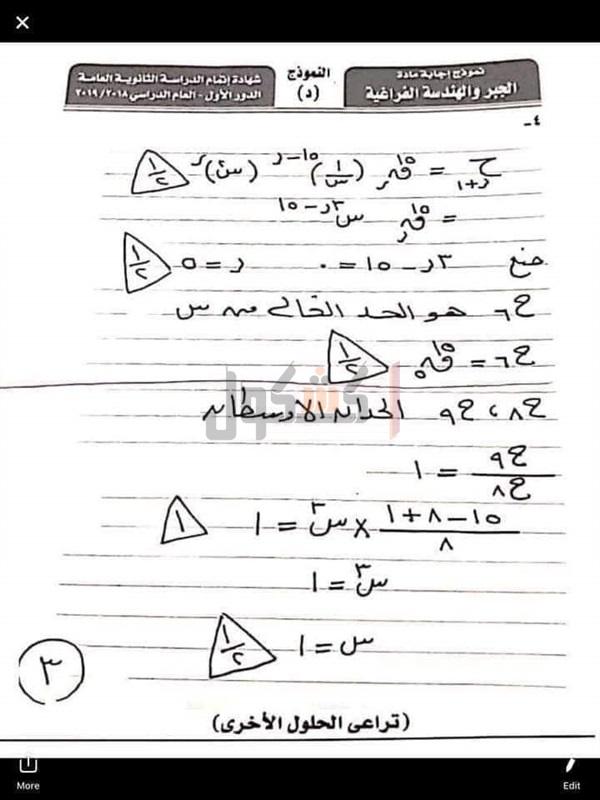 نموذج إجابة مادة
الجبر والهندسة الفراغية
النموذج
(د)
شهادة إتمام الدراسة الثانوية العامة
الدور الأول - العام الدراسي ٢٠١٩/٢٠١٨
٤-
ح ر+١ = ١٥ق ر (١/س)^١٥-ر (س٢)^ر ١/٢
= ١٥ق ر س^٣ر-١٥
٣ر - ١٥ = ٠ ر = ٥ ١/٢
ح٦ هو الحد الخالى من س
ح٦ = ١٥ق٥ ١/٢
ح٨ ، ح٩ الحدان الأوسطان
ح٩/ح٨ = ١
١٥-٨+١/٨ × س٣ = ١ ١
س٣ = ١
س = ١ ١/٢
٣
كشكول
(تراعى الحلول الأخرى)
More
Edit